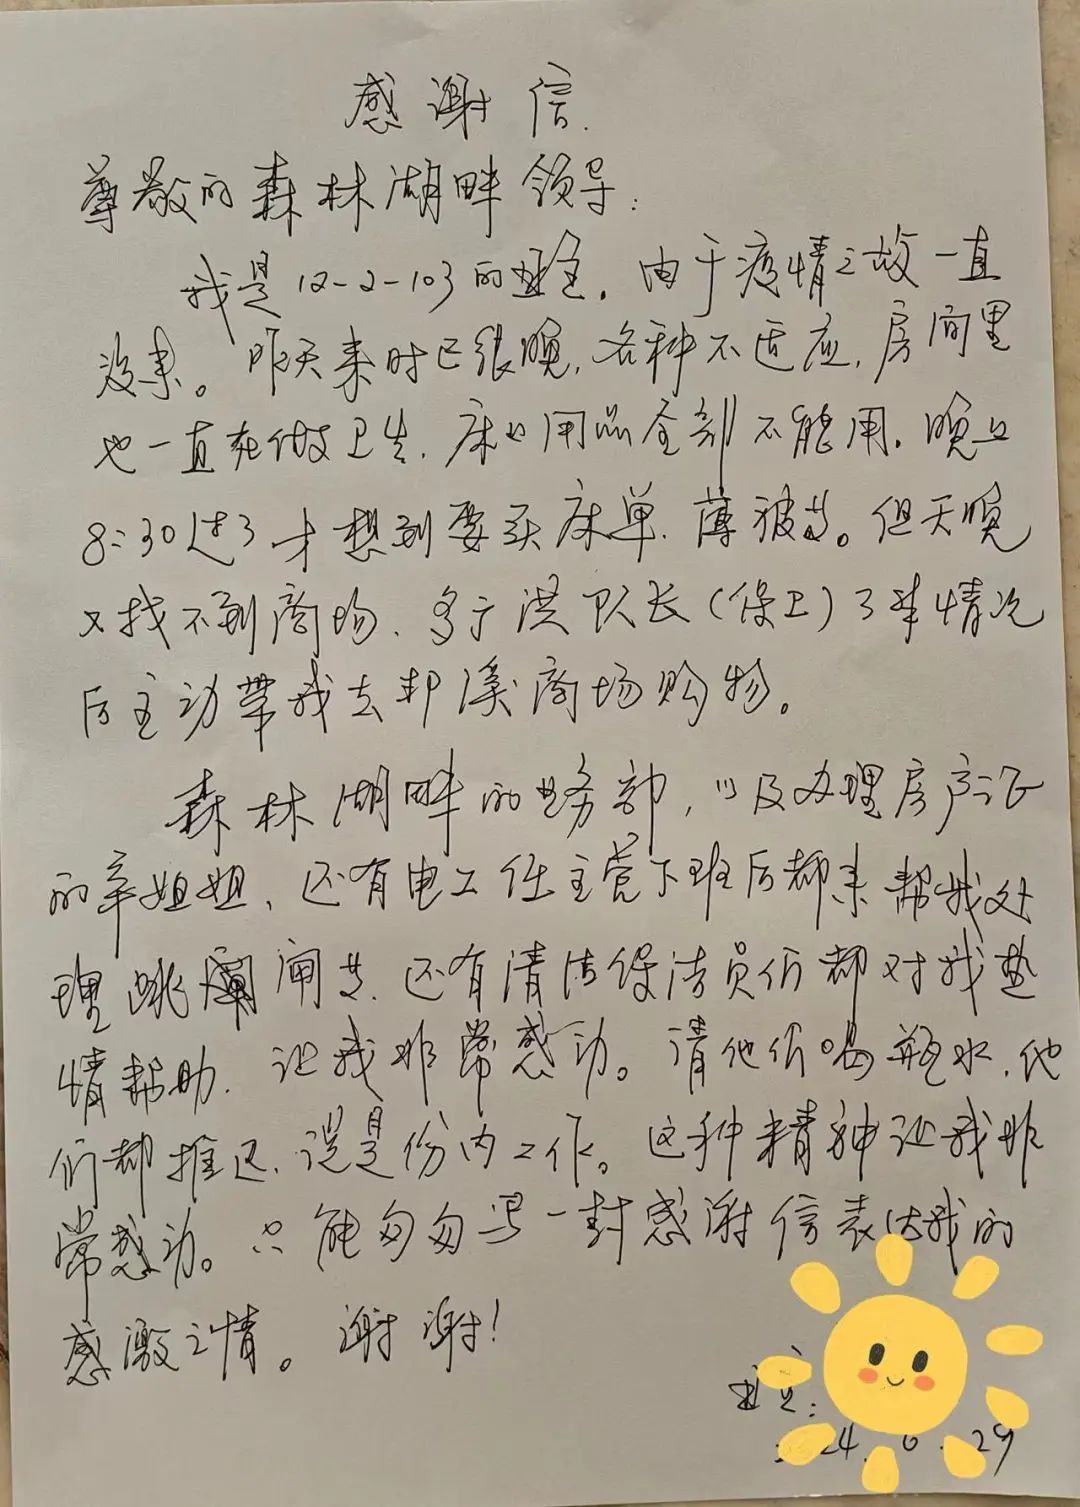 感谢信
尊敬的森林湖畔领导:
我是12-2-103的业主。由于疫情之故一直
没来。昨天来时已很晚,各种不适应,房间里
也一直在做卫生,床上用品全部不能用。晚上
8:30过了才想到要买床单、薄被芯。但天晚
又找不到商场、多亏洪队长(保卫)了解情况
后主动带我去邦溪商场购物。
森林湖畔的业务部,以及办理房产证
的辛姐姐、还有电工任主管下班后都来帮我处
理跳闸等、还有清洁保洁员们都对我热
情帮助、让我非常感动。请他们喝瓶水,他
们都推迟、说是份内工作。这种精神让我非
常感动。只能匆匆写一封感谢信表达我的
感激之情。谢谢!
业主:
24.6.29